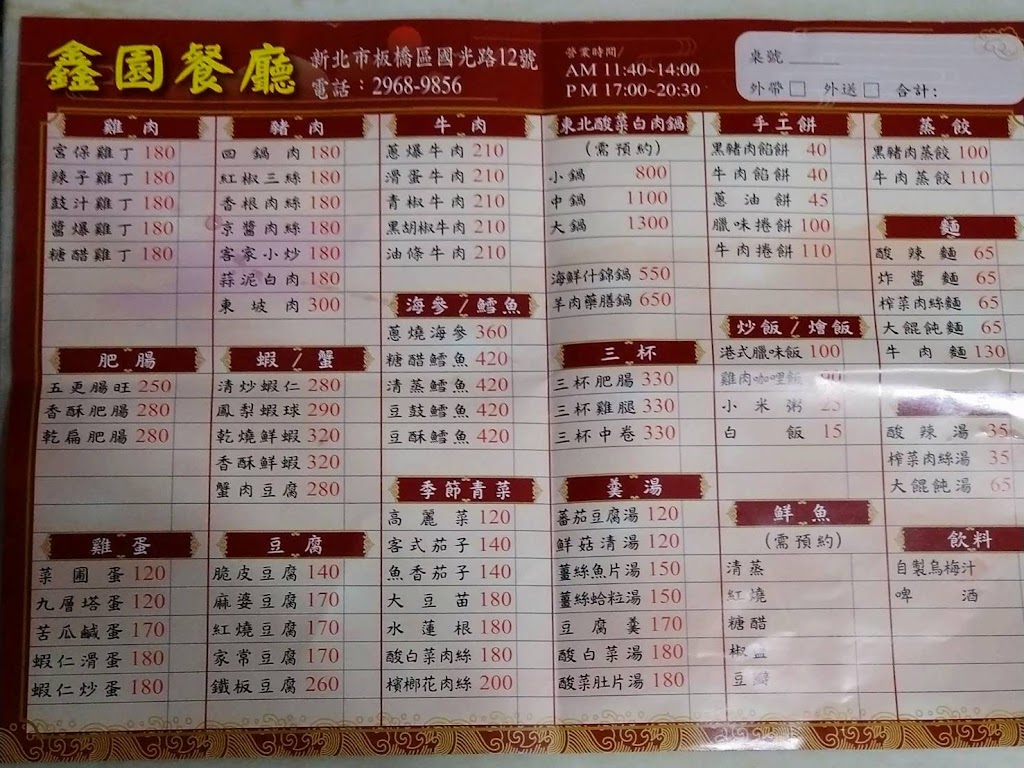 鑫園餐廳
新北市板橋區國光路12號
電話：2968-9856
營業時間/
AM 11:40~14:00
PM 17:00~20:30
桌號
外帶 外送 合計：
雞肉
宮保雞丁 180
辣子雞丁 180
鼓汁雞丁 180
醬爆雞丁 180
糖醋雞丁 180
肥腸
五更腸旺 250
香酥肥腸 280
乾扁肥腸 280
雞蛋
菜圃蛋 120
九層塔蛋 120
苦瓜鹹蛋 170
蝦仁滑蛋 180
蝦仁炒蛋 180
豬肉
回鍋肉 180
紅椒三絲 180
香根肉絲 180
京醬肉絲 180
客家小炒 180
蒜泥白肉 180
東坡肉 300
蝦/蟹
清炒蝦仁 280
鳳梨蝦球 290
乾燒鮮蝦 320
香酥鮮蝦 320
蟹肉豆腐 280
豆腐
脆皮豆腐 140
麻婆豆腐 170
紅燒豆腐 170
家常豆腐 170
鐵板豆腐 260
牛肉
蔥爆牛肉 210
滑蛋牛肉 210
青椒牛肉 210
黑胡椒牛肉 210
油條牛肉 210
海參/鱈魚
蔥燒海參 360
糖醋鱈魚 420
清蒸鱈魚 420
豆鼓鱈魚 420
豆酥鱈魚 420
季節青菜
高麗菜 120
客式茄子 140
魚香茄子 140
大豆苗 180
水蓮根 180
酸白菜肉絲 180
檳榔花肉絲 200
東北酸菜白肉鍋
(需預約)
小鍋 800
中鍋 1100
大鍋 1300
海鮮什錦鍋 550
羊肉藥膳鍋 650
三杯
三杯肥腸 330
三杯雞腿 330
三杯中卷 330
羹湯
蕃茄豆腐湯 120
鮮菇清湯 120
薑絲魚片湯 150
薑絲蛤粒湯 150
豆腐羹 170
酸白菜湯 180
酸菜肚片湯 180
手工餅
黑豬肉餡餅 40
牛肉餡餅 40
蔥油餅 45
臘味捲餅 100
牛肉捲餅 110
炒飯/燴飯
港式臘味飯 100
雞肉咖哩飯 90
小米粥 25
白飯 15
鮮魚
(需預約)
清蒸
紅燒
糖醋
椒鹽
豆瓣
蒸餃
黑豬肉蒸餃 100
牛肉蒸餃 110
麵
酸辣麵 65
炸醬麵 65
榨菜肉絲麵 65
大餛飩麵 65
牛肉麵 130
酸辣湯 35
榨菜肉絲湯 35
大餛飩湯 65
飲料
自製烏梅汁
啤酒